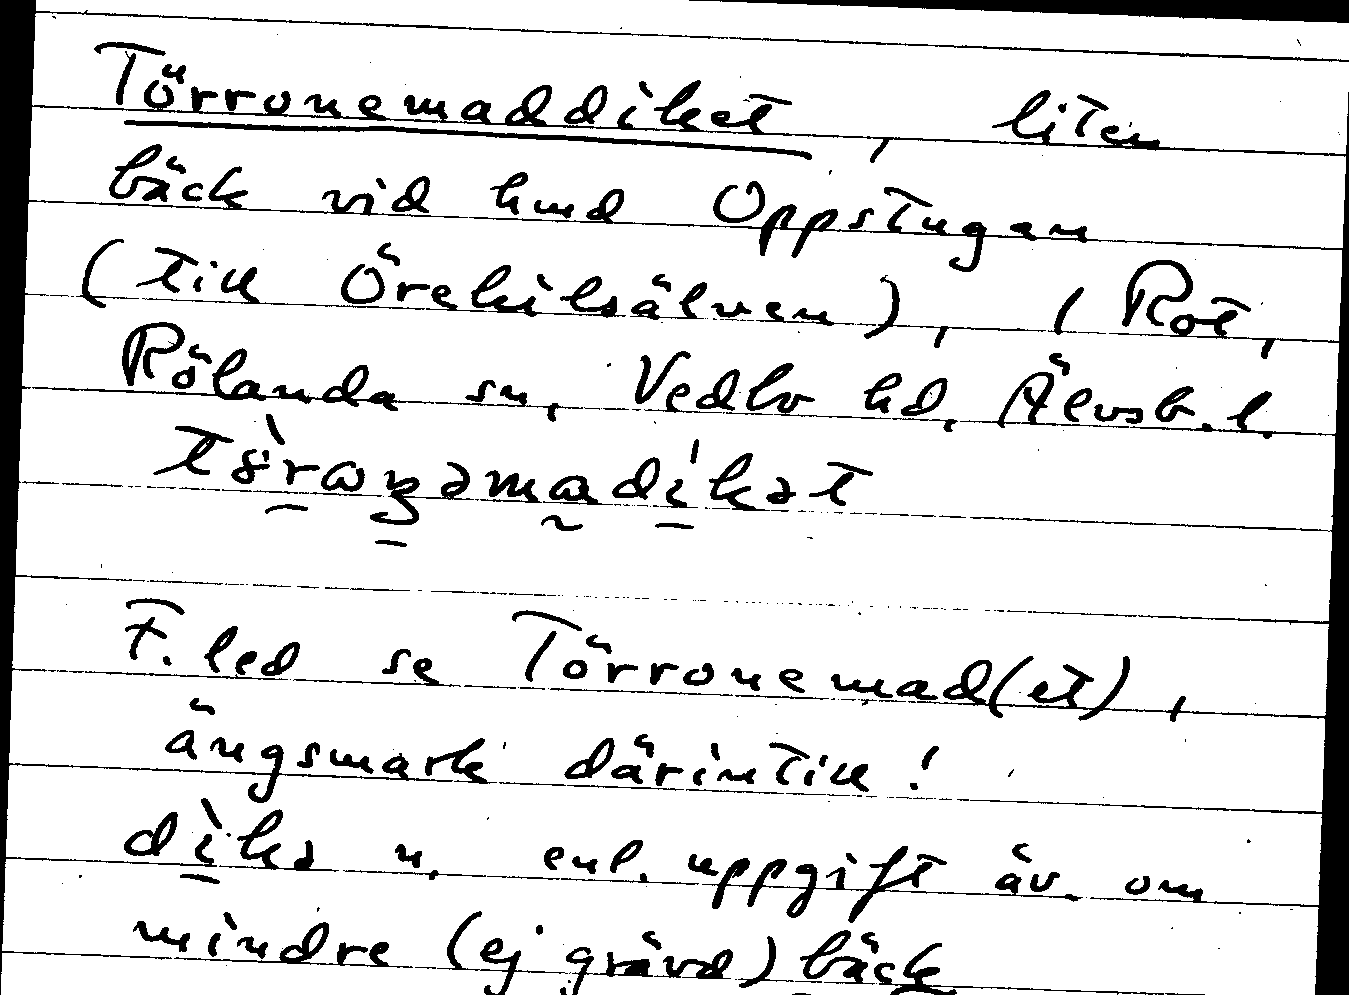 Törronemaddiket, liten
bäck vid hmd Oppstugan
(till Örekilsälven), (Rot,
Rölanda sn, Vedbo hd, Älvsb. l.
F. led se Törronemad(et),
ängsmark därintill!
dìkə n. enl. uppgift äv. om
mindre (ej grävd) bäck